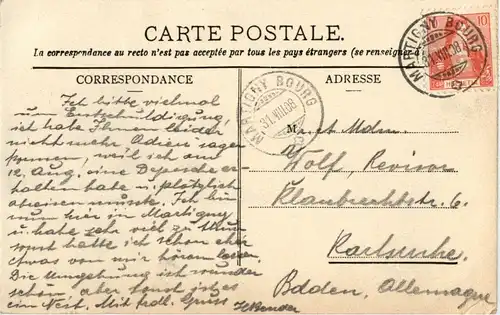 CARTE POSTALE.
La correspondance au recto n'est pas acceptée par tous les pays étrangers (se renseigner à
CORRESPONDANCE
ADRESSE
MARTIGNY BOURG
31.VIII.08
MARTIGNY BOURG
31.VIII.08
10
HELVETIA
Ich bitte vielmal
um Entschuldigung,
ich habe Ihnen leider
nicht mehr Adieu sagen
können, weil ich am
12. Aug. eine Depesche er-
halten habe u. plötzlich
abreisen musste. Ich bin
nun hier in Martigny
u. habe sehr viel zu thun
sonst hätte ich schon eher
etwas von mir hören lassen.
Die Umgebung ist wunder
schön, aber sonst ist es
ein Nest. Mit frdl. Gruss
HBender
M r. et Mdm.
Wolf, Revisor
Klauprechtstr. 6
Karlsruhe.
Baden, Allemagne